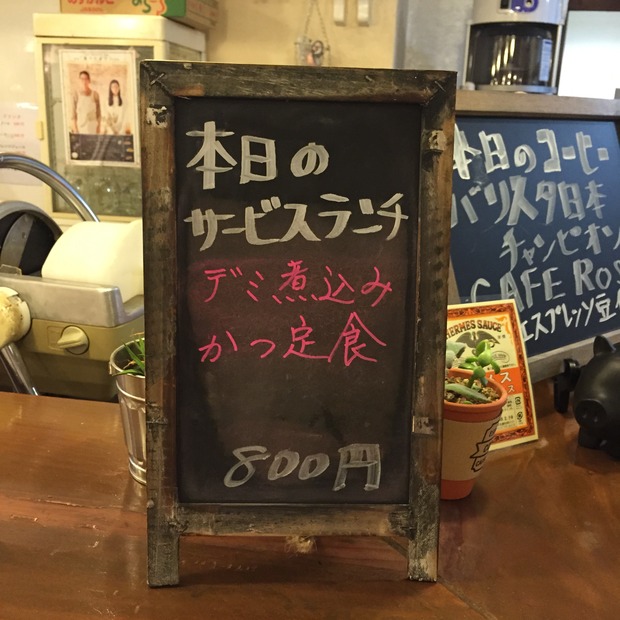 本日の
サービスランチ
デミ煮込み
かつ定食
800円
本日のコーヒー
バリスタ日本
チャンピオン
CAFE ROS
エスプレッソ豆
HERMES SAUCE